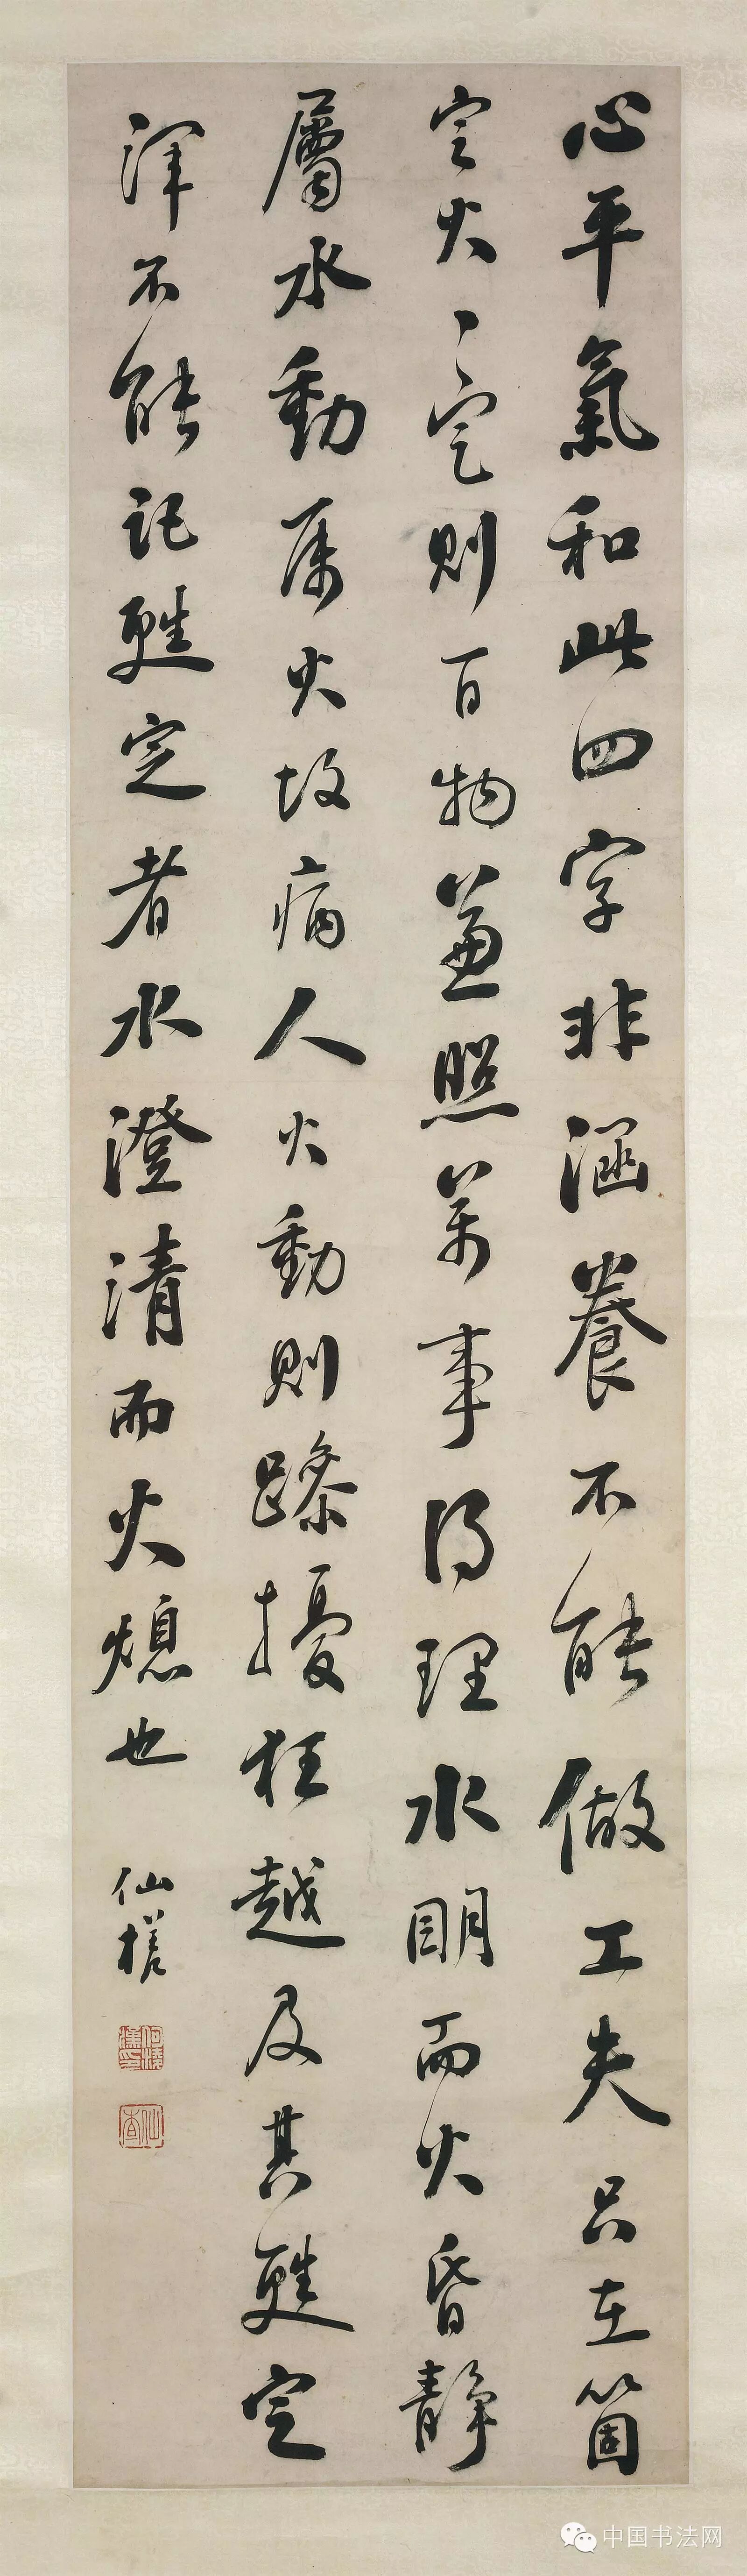 心平氣和此四字非涵養不能做工夫只在箇
定火火定則百物兼照萬事得理水明而火昏靜
屬水動屬火故病人火動則躁擾狂越及其甦定
渾不能記甦定者水澄清而火熄也
仙槎
中国书法网